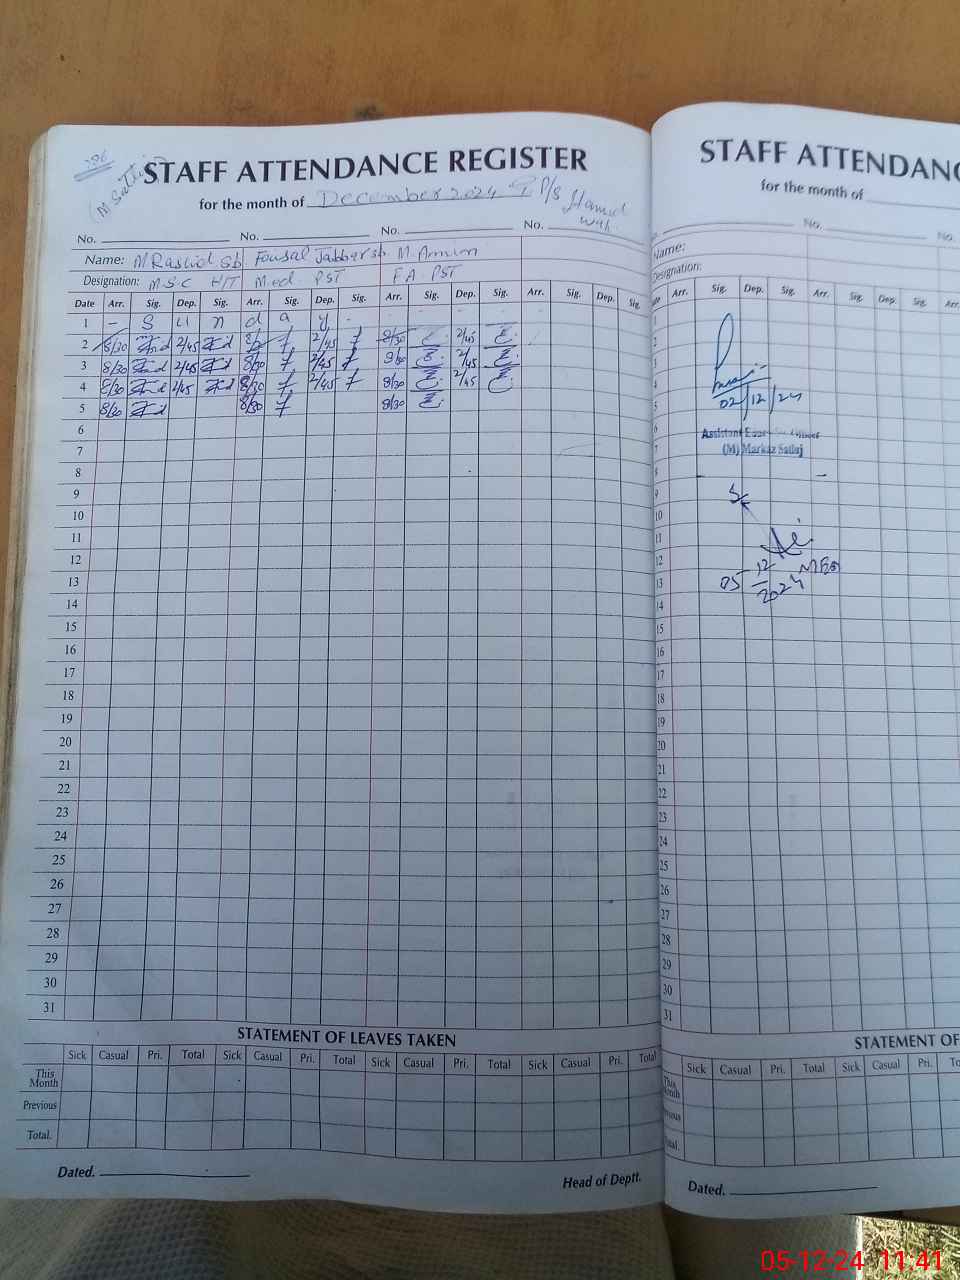 786
STAFF ATTENDANCE REGISTER
for the month of December 2024 P/S Hamid
No. No. No. No.
Name: M Rashid Sb M. Armin
Designation: M.S.C H/T M.ed. PST F.A. PST
Date Arr. Sig. Dep. Sig. Arr. Sig. Dep. Sig. Arr. Sig. Dep. Sig. Arr. Sig. Dep. Sig.
1 - S u n d a y
2 8/30 2/45 8/30 2/45 8/30 2/45
3 8/30 2/45 8/30 2/45 8/30 2/45
4 8/30 2/45 8/30 2/45 8/30 2/45
5 8/30 8/30 8/30
6
7
8
9
10
11
12
13
14
15
16
17
18
19
20
21
22
23
24
25
26
27
28
29
30
31
STATEMENT OF LEAVES TAKEN
Sick Casual Pri. Total Sick Casual Pri. Total Sick Casual Pri. Total Sick Casual Pri. Total
This Month
Previous
Total.
Dated. Head of Deptt.
STAFF ATTENDANC
for the month of
No. No.
Name:
Designation:
Arr. Sig. Dep. Sig. Arr. Sig. Dep. Sig.
1
2
3
4
5
6
7
8
9
10
11
12
13
14
15
16
17
18
19
20
21
22
23
24
25
26
27
28
29
30
31
02/12/24
Assistant Education Officer
(M) Markaz Satluj
05 12 2024 MEA
STATEMENT OF
Sick Casual Pri. Total Sick Casual Pri. To
This Month
Dated.
05-12-24 11:41